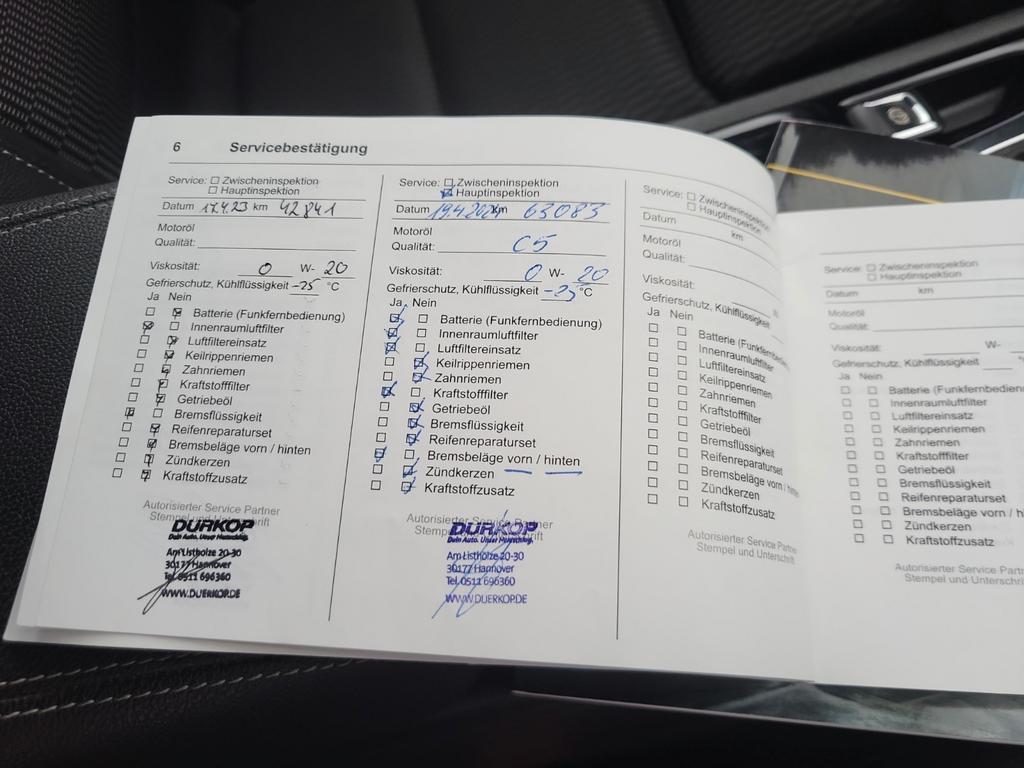 6 Servicebestätigung
Service: ☐ Zwischeninspektion
☐ Hauptinspektion
Datum 17.4.23 km 42841
Motoröl
Qualität:
Viskosität: 0 W- 20
Gefrierschutz, Kühlflüssigkeit -25 °C
Ja Nein
☐ ☒ Batterie (Funkfernbedienung)
☒ ☐ Innenraumluftfilter
☐ ☒ Luftfiltereinsatz
☐ ☒ Keilrippenriemen
☐ ☒ Zahnriemen
☐ ☒ Kraftstofffilter
☐ ☒ Getriebeöl
☒ ☐ Bremsflüssigkeit
☐ ☒ Reifenreparaturset
☐ ☒ Bremsbeläge vorn / hinten
☐ ☒ Zündkerzen
☐ ☒ Kraftstoffzusatz
Autorisierter Service Partner
Stempel und Unterschrift
DÜRKOP
Dein Auto. Unser Herzschlag.
Am Listholze 20-30
30177 Hannover
Tel. 0511 696360
WWW.DUERKOP.DE
Service: ☐ Zwischeninspektion
☒ Hauptinspektion
Datum 19.4.2024 km 63083
Motoröl
Qualität: C5
Viskosität: 0 W- 20
Gefrierschutz, Kühlflüssigkeit -25 °C
Ja Nein
☒ ☐ Batterie (Funkfernbedienung)
☒ ☐ Innenraumluftfilter
☒ ☐ Luftfiltereinsatz
☐ ☒ Keilrippenriemen
☐ ☒ Zahnriemen
☒ ☐ Kraftstofffilter
☐ ☒ Getriebeöl
☐ ☒ Bremsflüssigkeit
☐ ☒ Reifenreparaturset
☒ ☐ Bremsbeläge vorn / hinten
☐ ☒ Zündkerzen
☐ ☒ Kraftstoffzusatz
Autorisierter Service Partner
Stempel und Unterschrift
DÜRKOP
Dein Auto. Unser Herzschlag.
Am Listholze 20-30
30177 Hannover
Tel. 0511 696360
WWW.DUERKOP.DE
Service: ☐ Zwischeninspektion
☐ Hauptinspektion
Datum km
Motoröl
Qualität:
Viskosität: W
Gefrierschutz, Kühlflüssigkeit
Ja Nein
☐ ☐ Batterie (Funkfernbe
☐ ☐ Innenraumluftfilter
☐ ☐ Luftfiltereinsatz
☐ ☐ Keilrippenriemen
☐ ☐ Zahnriemen
☐ ☐ Kraftstofffilter
☐ ☐ Getriebeöl
☐ ☐ Bremsflüssigkeit
☐ ☐ Reifenreparaturset
☐ ☐ Bremsbeläge vorn / hinten
☐ ☐ Zündkerzen
☐ ☐ Kraftstoffzusatz
Autorisierter Service Partne
Stempel und Unterschrift
Service: ☐ Zwischeninspektion
☐ Hauptinspektion
Datum km
Motoröl
Qualität:
Viskosität: W-
Gefrierschutz, Kühlflüssigkeit
Ja Nein
☐ ☐ Batterie (Funkfernbedienun
☐ ☐ Innenraumluftfilter
☐ ☐ Luftfiltereinsatz
☐ ☐ Keilrippenriemen
☐ ☐ Zahnriemen
☐ ☐ Kraftstofffilter
☐ ☐ Getriebeöl
☐ ☐ Bremsflüssigkeit
☐ ☐ Reifenreparaturset
☐ ☐ Bremsbeläge vorn / hi
☐ ☐ Zündkerzen
☐ ☐ Kraftstoffzusatz
Autorisierter Service Partn
Stempel und Unterschrif